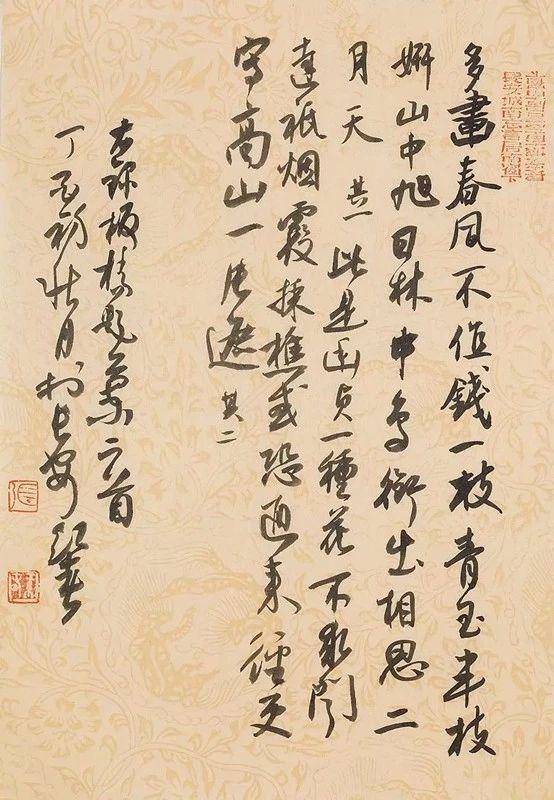 多畫春風不值錢一枝青玉半枝
妍山中旭日林中鳥銜出相思二
月天 其一 此是幽貞一種花不求聞
達祇烟霞採樵或恐通來徑更
寫高山一片遮 其二
板橋題蘭二首
丁酉初月於長安